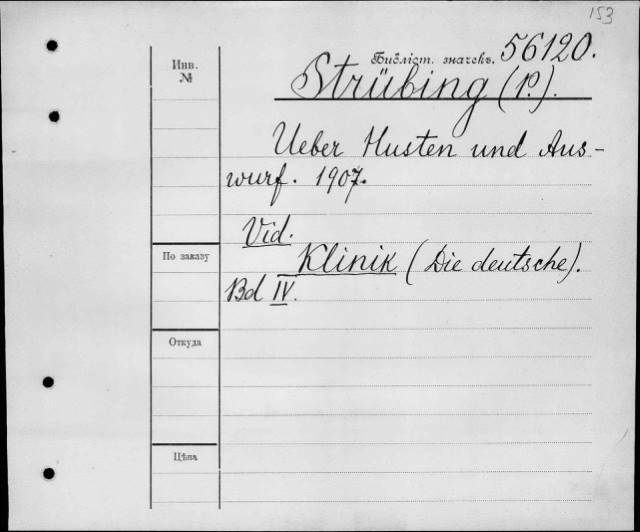 153
Инв.
№
Библіот. значекъ. 56120.
Strübing (P.).
Ueber Husten und Aus-
wurf. 1907.
Vid.
По заказу
Klinik (Die deutsche).
Bd IV.
Откуда
Цѣна